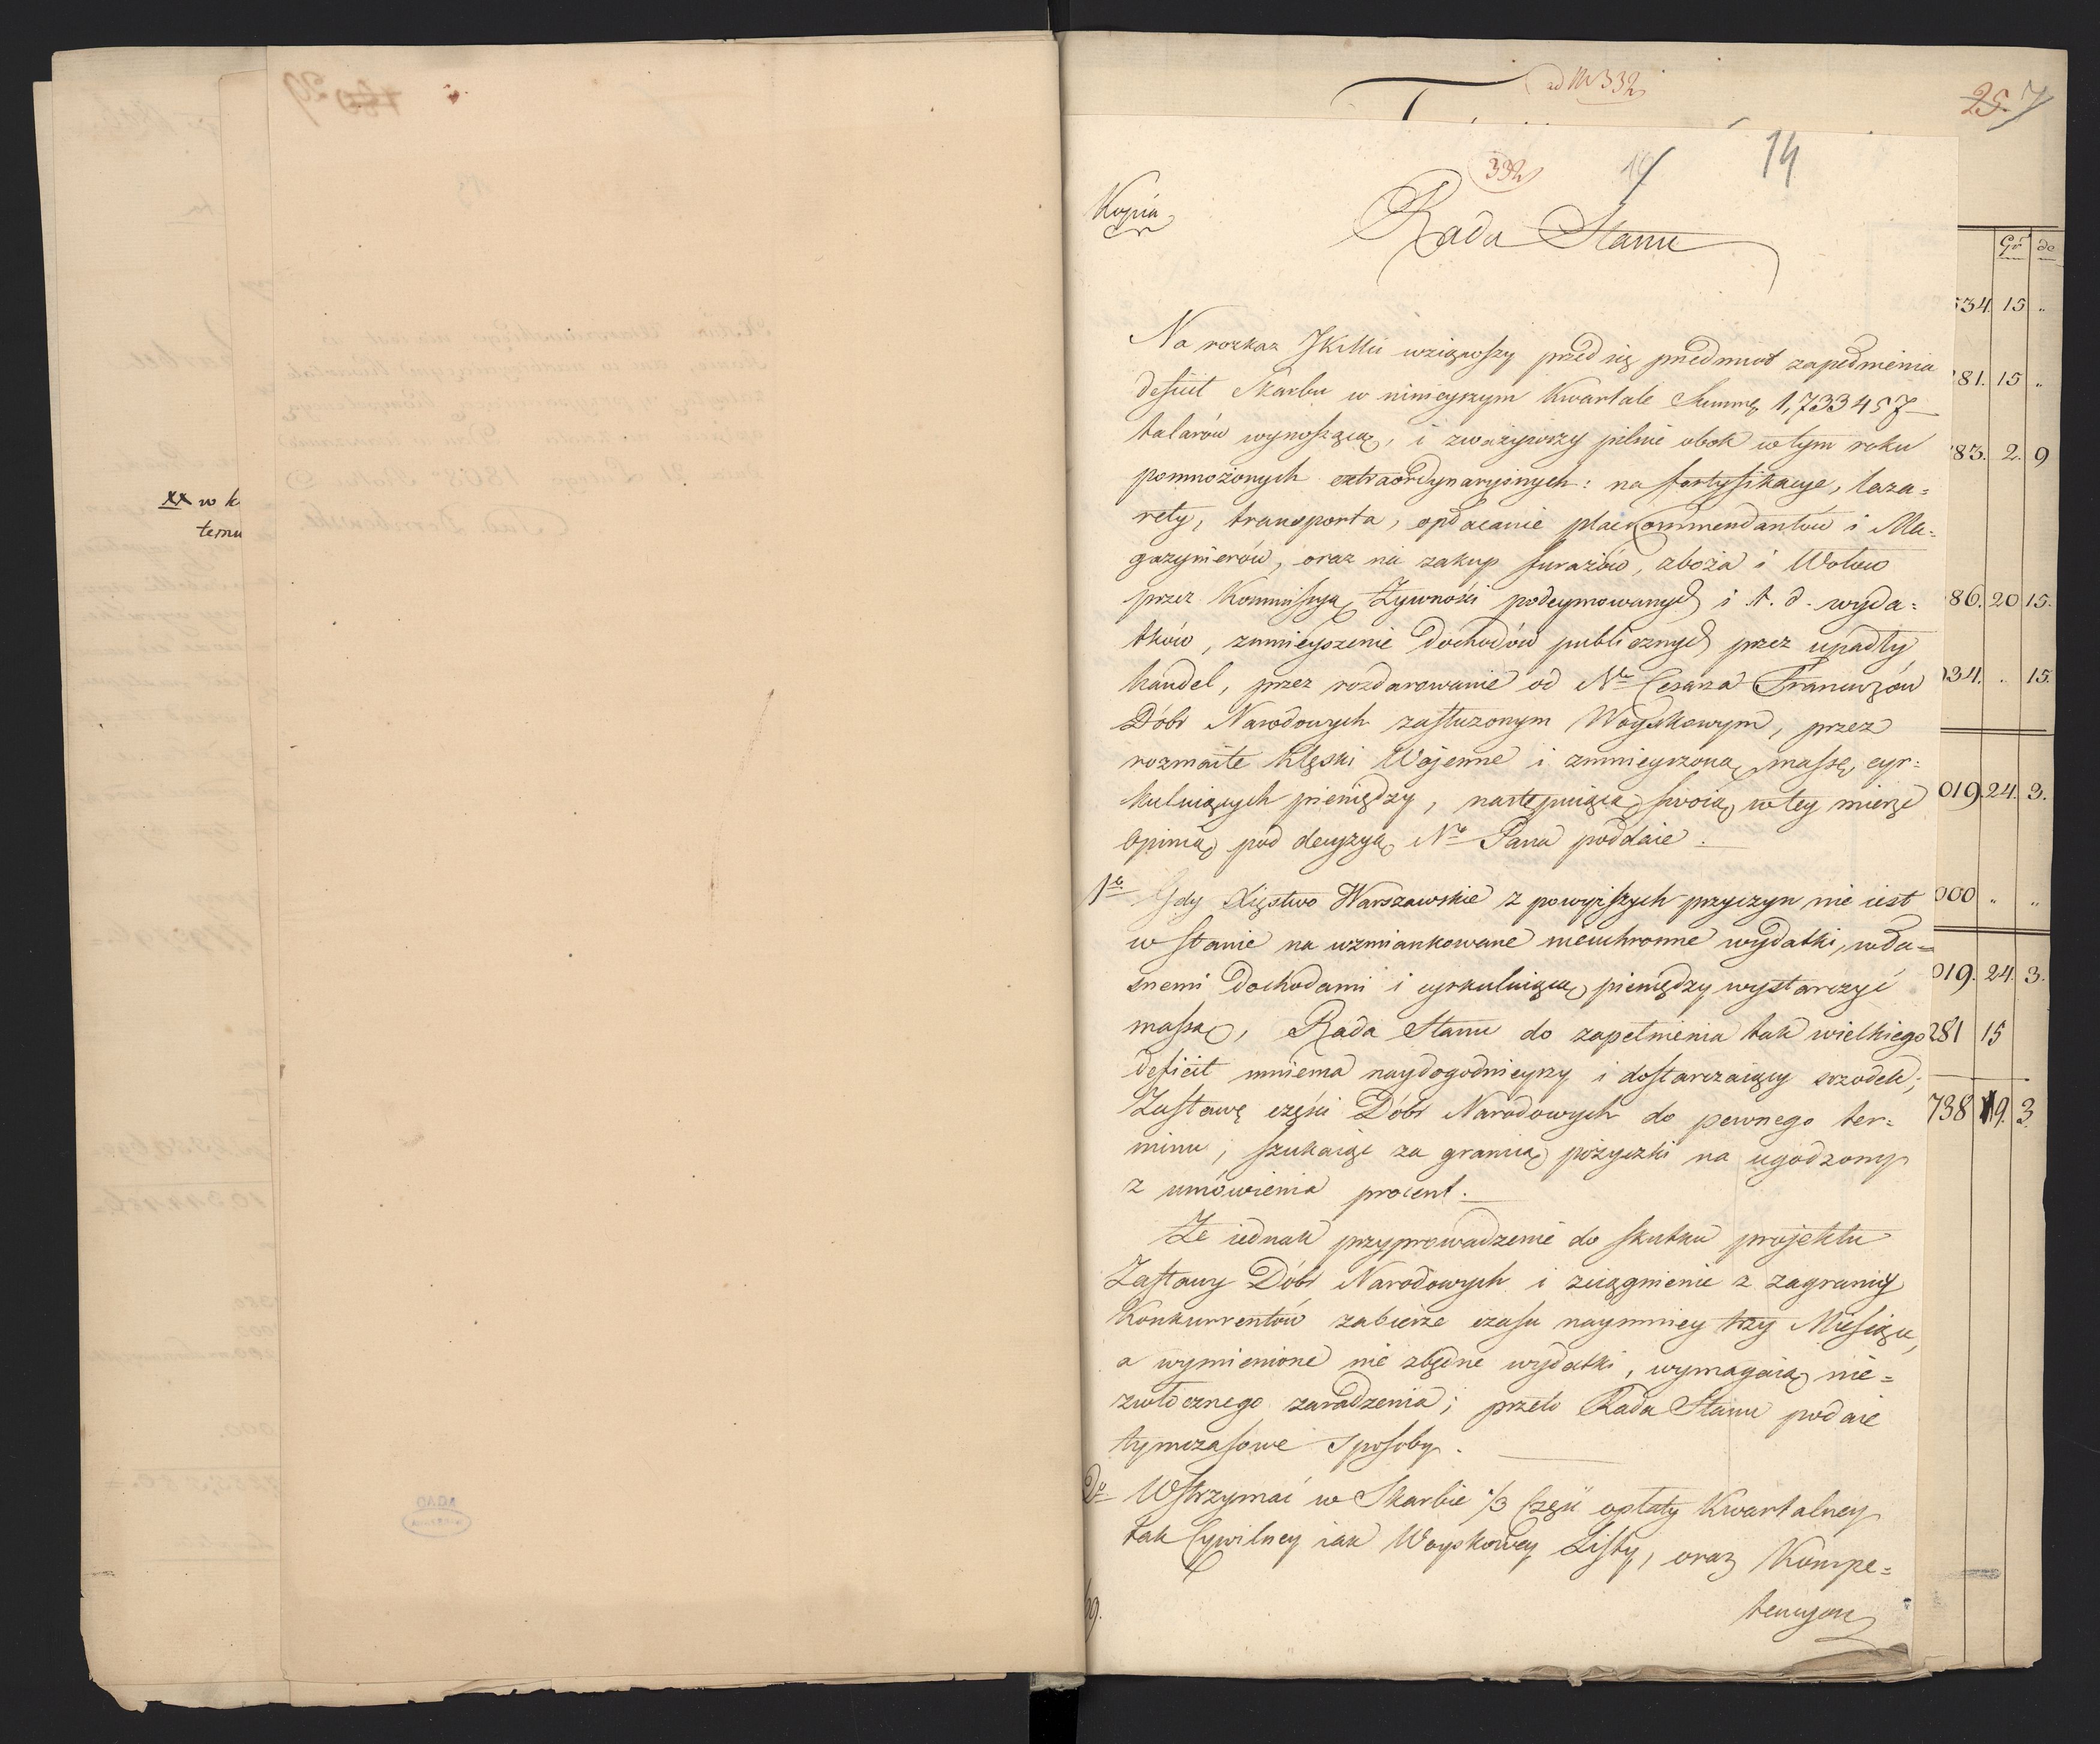 ad N 332
25. 7
332
14
14
Kopia
Rada Stanu
Na rozkaz JKMci wziąwszy przed się przedmiot zapełnienia
deficit Skarbu w ninieyszym Kwartale Summę 1,733457
talarów wynoszącą, i zważywszy pilnie obok w tym roku
pomnożonych extraordynaryinych: na fortyfikacye, laza=
rety, transporta, opłacanie plackommendantów i Ma=
gazynierów, oraz na zakup furażów, zboża i Wołów
przez Kommissyą Żywności podeymowanych i t. d. wyda=
tków, zmnieyszenie dochodów publicznych przez upadły
handel, przez rozdarowanie od No Cesarza Francuzów
Dóbr Narodowych zasłużonym Woyskowym, przez
rozmaite klęski Wojenne i zmnieyszoną massę cyr=
kuluiących pieniędzy, następuiącą swoią w tey mierze
Opinią pod decyzyą No Pana poddaie.
1o Gdy Xięstwo Warszawskie z powyższych przyczyn nie iest
w stanie na wzmiankowane nieuchronne wydatki, wła=
snemi dochodami i cyrkuluiącą pieniędzy wystarczyć
massą, Rada Stanu do zapełnienia tak wielkiego
deficit mniema naydogodnieyszy i dostarczaiący srzodek;
Zastawę części Dóbr Narodowych do pewnego ter=
minu, szukaiąc za granicą pożyczki na ugodzony
z umówienia procent.
Że iednak przyprowadzenie do skutku projektu
Zastawy Dóbr Narodowych i ściągnienie z zagranicy
Konkurrentów zabierze czasu naymniey trzy Miesiące,
a wymienione nie zbędne wydatki, wymagaią nie=
zwłocznego zaradzenia; przeto Rada Stanu podaie
tymczasowe sposoby.
2o Wstrzymać w Skarbie 1/3 Część opłaty Kwartalney
tak Cywilney iak Woyskowey Listy, oraz Kompe=
tencyom
xx w k
temu
Gr de
534. 15 "
281. 15 "
83. 2. 9
86. 20 15.
034. " 15.
019. 24. 3.
000 " "
019. 24. 3.
281 15
738 19. 3